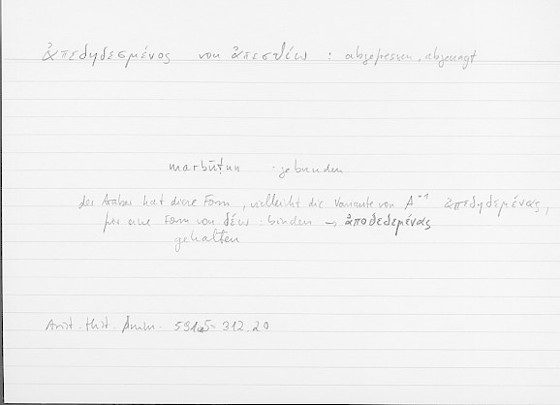 ἀπεδηδεσμένος von ἀπεσθίω : abgefressen, abgenagt
marbūṭun gebunden
der Araber hat diese Form, vielleicht die Variante von Aᵃ¹ ἀπεδηδεμένας,
für eine Form von δέω binden → ἀποδεδεμένας
gehalten
Arist. Hist. Anim. 591 5 = 312.20